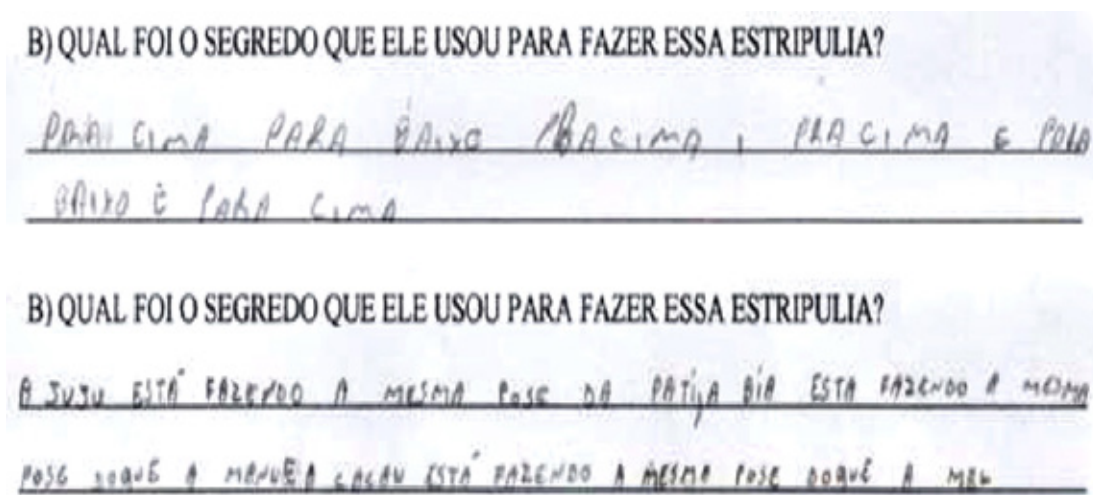 B) QUAL FOI O SEGREDO QUE ELE USOU PARA FAZER ESSA ESTRIPULIA?
PARA CIMA PARA BAIXO PRACIMA, PRA CIMA E PARA
BAIXO E PARA CIMA
B) QUAL FOI O SEGREDO QUE ELE USOU PARA FAZER ESSA ESTRIPULIA?
A JUJU ESTÁ FAZENDO A MESMA POSE DA BÍA ESTA FAZENDO A MESMA
POSE DOQUE A CACAU ESTÁ FAZENDO A MESMA POSE DOQUE A